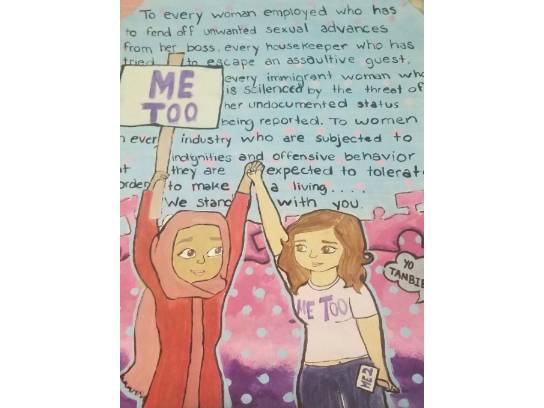 To every woman employed who has
to fend off unwanted sexual advances
from her boss, every housekeeper who has
tried to escape an assaultive guest,
every immigrant woman who
is scilenced by the threat of
her undocumented status
being reported. To women
n every industry who are subjected to
indignities and offensive behavior
t they are expected to tolerat
order to make a living....
We stand with you.
ME
TOO
ME TOO
ME 2
YO
TANBIE